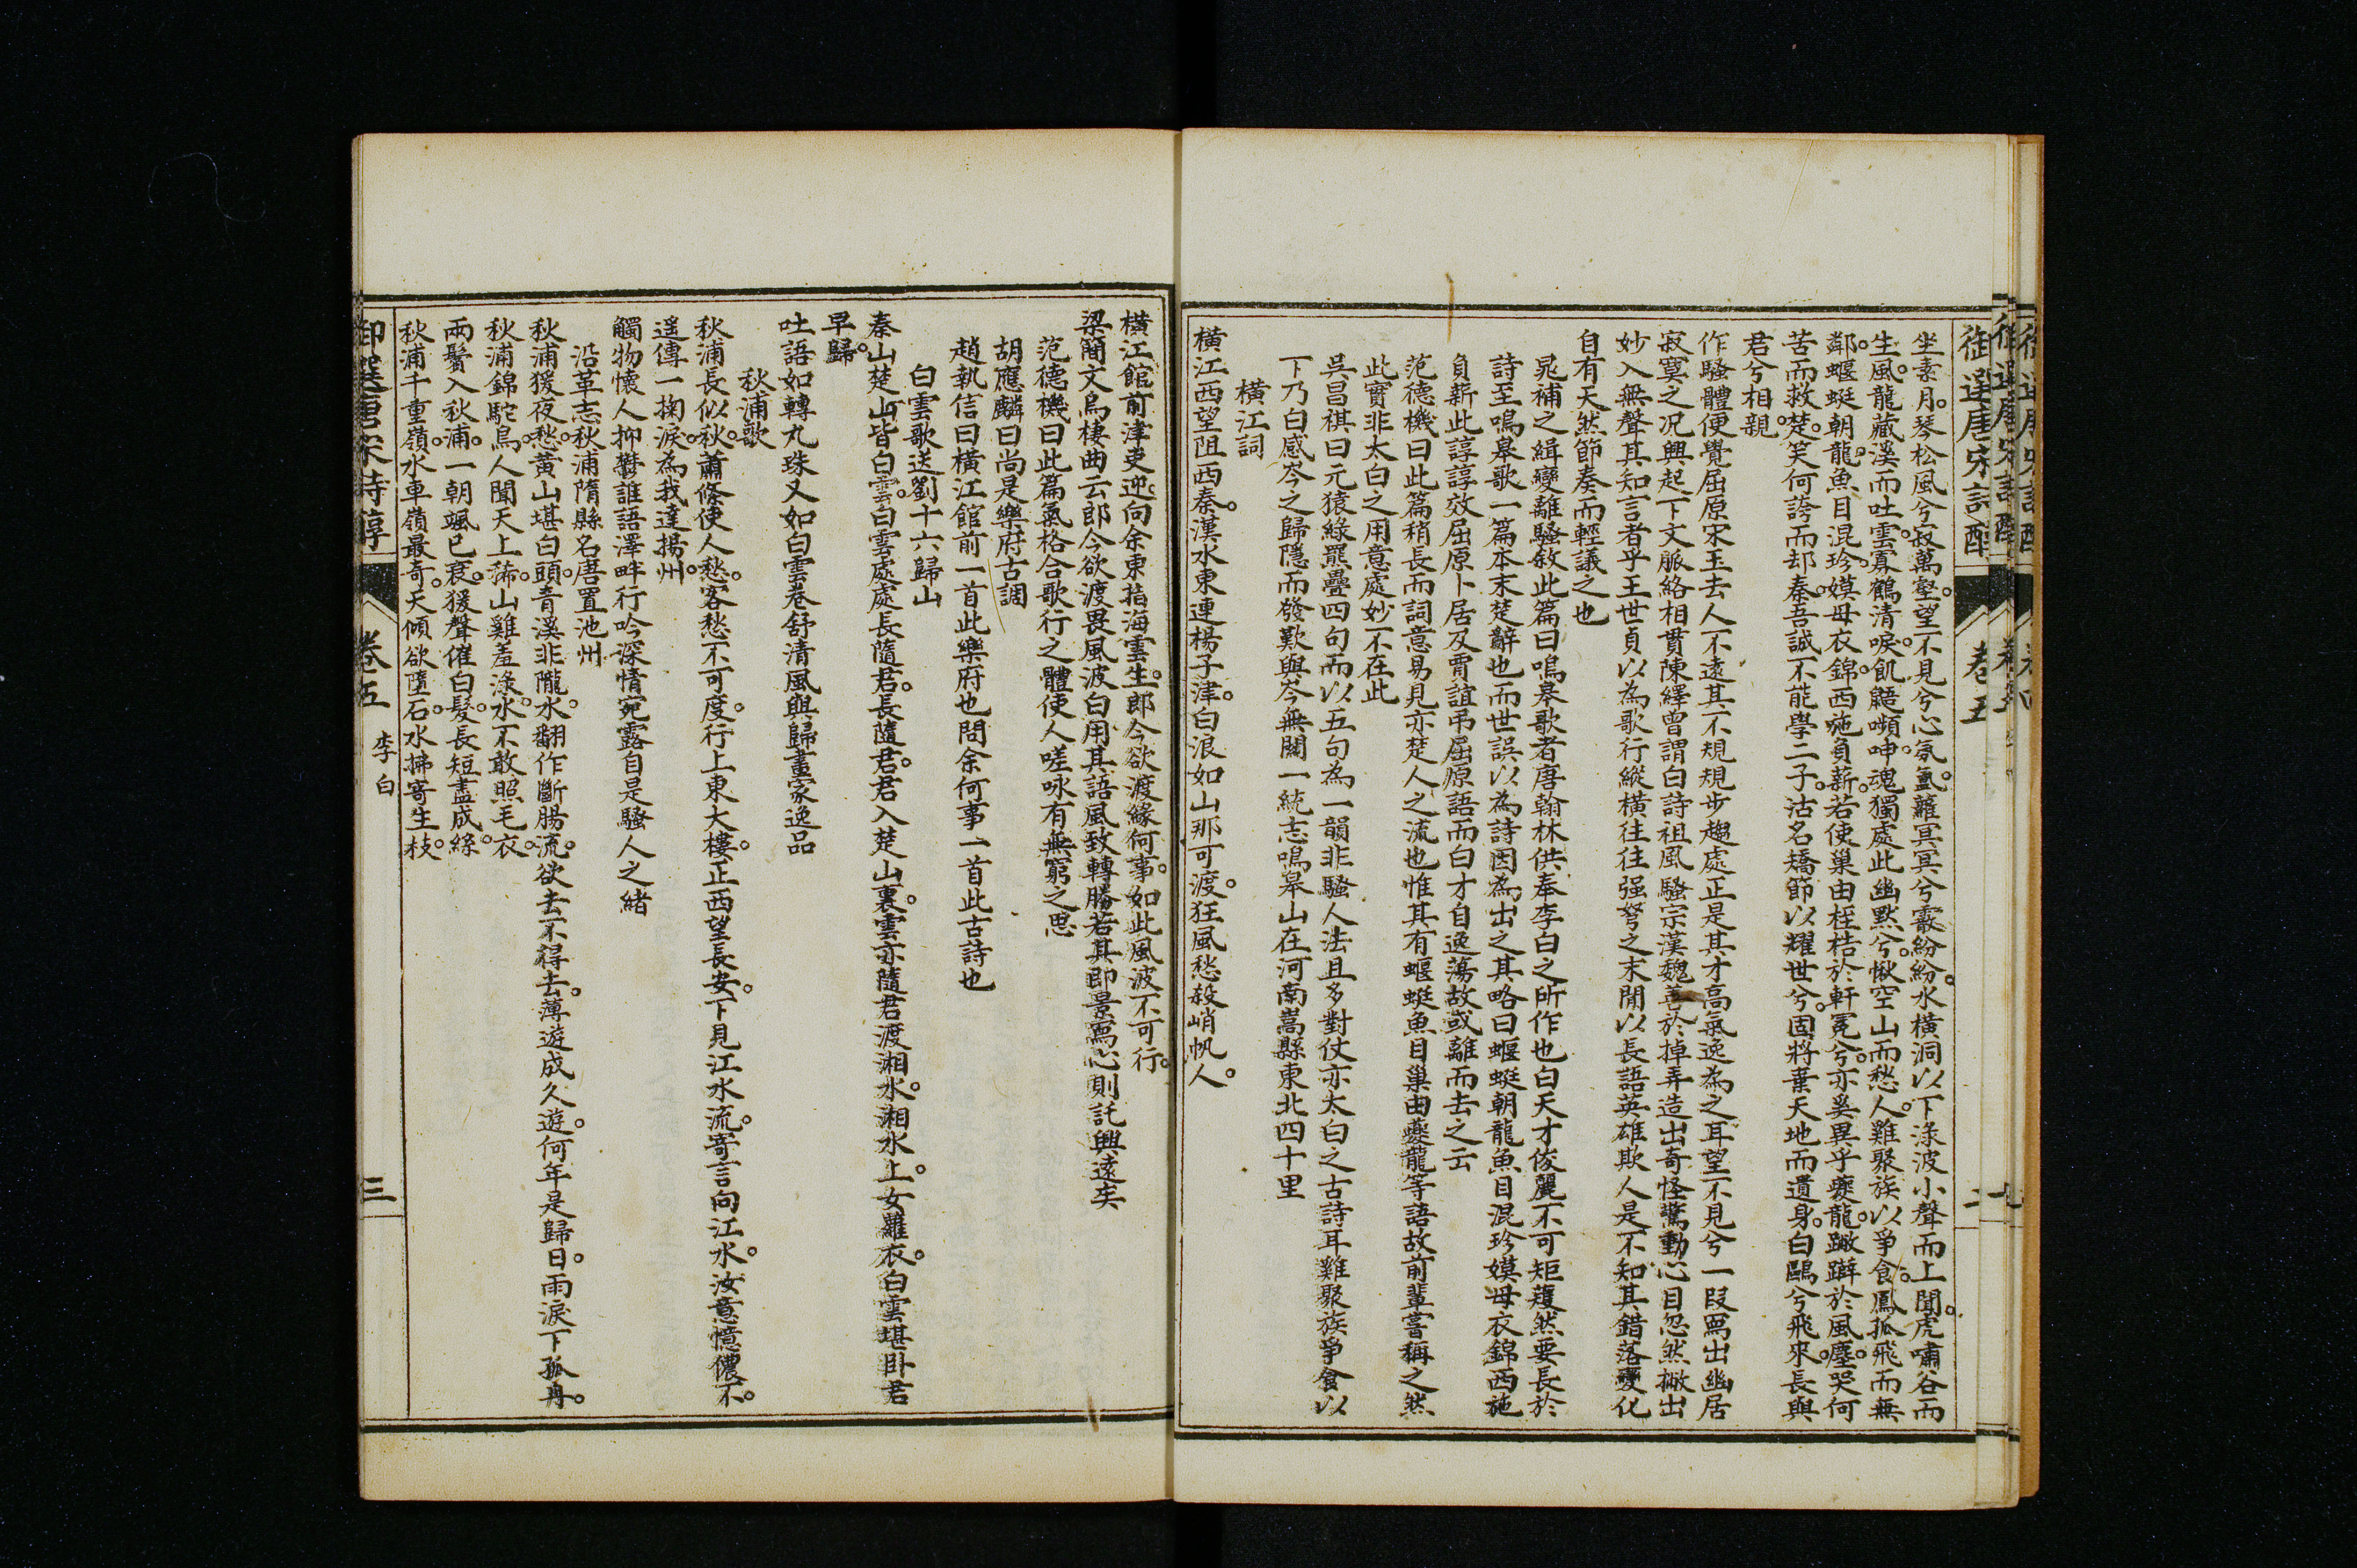 御選唐宋詩醇
卷五
二
坐素月琴松風兮寂萬壑望不見兮心氛氳蘿冥冥兮霰紛紛水橫洞以下淥波小聲而上聞虎嘯谷而
生風龍藏溪而吐雲寡鶴清唳飢鼯嚬呻魂獨處此幽默兮愀空山而愁人雞聚族以爭食鳳孤飛而無
鄰蝘蜓朝龍魚目混珍嫫母衣錦西施負薪若使巢由桎梏於軒冕兮亦奚異乎夔龍蹩躠於風塵哭何
苦而救楚笑何誇而却秦吾誠不能學二子沽名矯節以耀世兮固將棄天地而遺身白鷗兮飛來長與
君兮相親
作騷體便覺屈原宋玉去人不遠其不規規步趨處正是其才高氣逸為之耳望不見兮一段寫出幽居
寂寞之况興起下文脈絡相貫陳繹曾謂白詩祖風騷宗漢魏善於掉弄造出奇怪驚動心目忽然撇出
妙入無聲其知言者乎王世貞以為歌行縱橫往往强弩之末閒以長語英雄欺人是不知其錯落變化
自有天然節奏而輕議之也
晁補之緝變離騷敘此篇曰鳴皋歌者唐翰林供奉李白之所作也白天才俊麗不可矩矱然要長於
詩至鳴皋歌一篇本末楚辭也而世誤以為詩因為出之其略曰蝘蜓朝龍魚目混珍嫫母衣錦西施
負薪此諄諄效屈原卜居及賈誼弔屈原語而白才自逸蕩故或離而去之云
范德機曰此篇稍長而詞意易見亦楚人之流也惟其有蝘蜓魚目巢由夔龍等語故前輩嘗稱之然
此實非太白之用意處妙不在此
吳昌祺曰元猿綠羆疊四句而以五句為一韻非騷人法且多對仗亦太白之古詩耳雞聚族爭食以
下乃白感岑之歸隱而發歎與岑無關一統志鳴皋山在河南嵩縣東北四十里
橫江詞
橫江西望阻西秦漢水東連楊子津白浪如山那可渡狂風愁殺峭帆人
橫江館前津吏迎向余東指海雲生郎今欲渡緣何事如此風波不可行
梁簡文烏棲曲云郎今欲渡畏風波白用其語風致轉勝若其即景寫心則託興遠矣
范德機曰此篇氣格合歌行之體使人嗟咏有無窮之思
胡應麟曰尚是樂府古調
趙執信曰橫江館前一首此樂府也問余何事一首此古詩也
白雲歌送劉十六歸山
秦山楚山皆白雲白雲處處長隨君長隨君君入楚山裏雲亦隨君渡湘水湘水上女蘿衣白雲堪臥君
早歸
吐語如轉丸珠又如白雲卷舒清風與歸畫家逸品
秋浦歌
秋浦長似秋蕭條使人愁客愁不可度行上東大樓正西望長安下見江水流寄言向江水汝意憶儂不
遥傳一掬淚為我達揚州
觸物懷人抑鬱誰語澤畔行吟深情宛露自是騷人之緒
沿革志秋浦隋縣名唐置池州
秋浦猨夜愁黃山堪白頭青溪非隴水翻作斷腸流欲去不得去薄遊成久遊何年是歸日雨淚下孤舟
秋浦錦駝鳥人聞天上稀山雞羞淥水不敢照毛衣
兩鬢入秋浦一朝颯已衰猨聲催白髮長短盡成絲
秋浦千重嶺水車嶺最奇天傾欲墮石水拂寄生枝
御選唐宋詩醇
卷五
李白
三